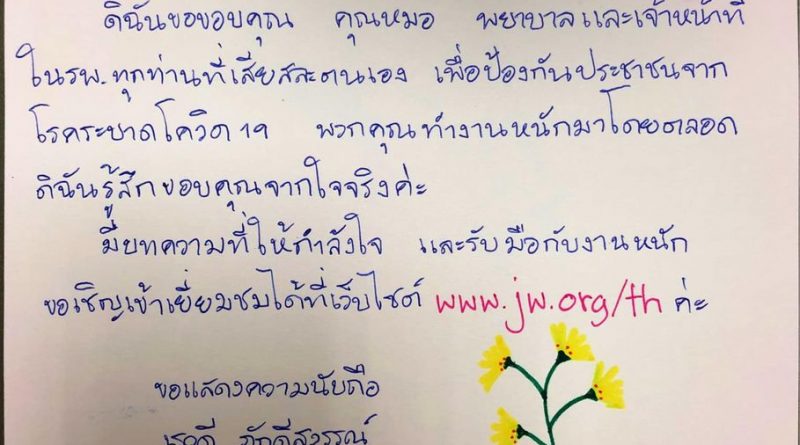 ดิฉันขอขอบคุณ คุณหมอ พยาบาลและเจ้าหน้าที่
ในรพ.ทุกท่านที่เสียสละตนเอง เพื่อป้องกันประชาชนจาก
โรคระบาดโควิด19 พวกคุณทำงานหนักมาโดยตลอด
ดิฉันรู้สึกขอบคุณจากใจจริงค่ะ
มีบทความที่ให้กำลังใจ และรับมือกับงานหนัก
ขอเชิญเข้าเยี่ยมชมได้ที่เว็บไซต์ www.jw.org/th ค่ะ
ขอแสดงความนับถือ